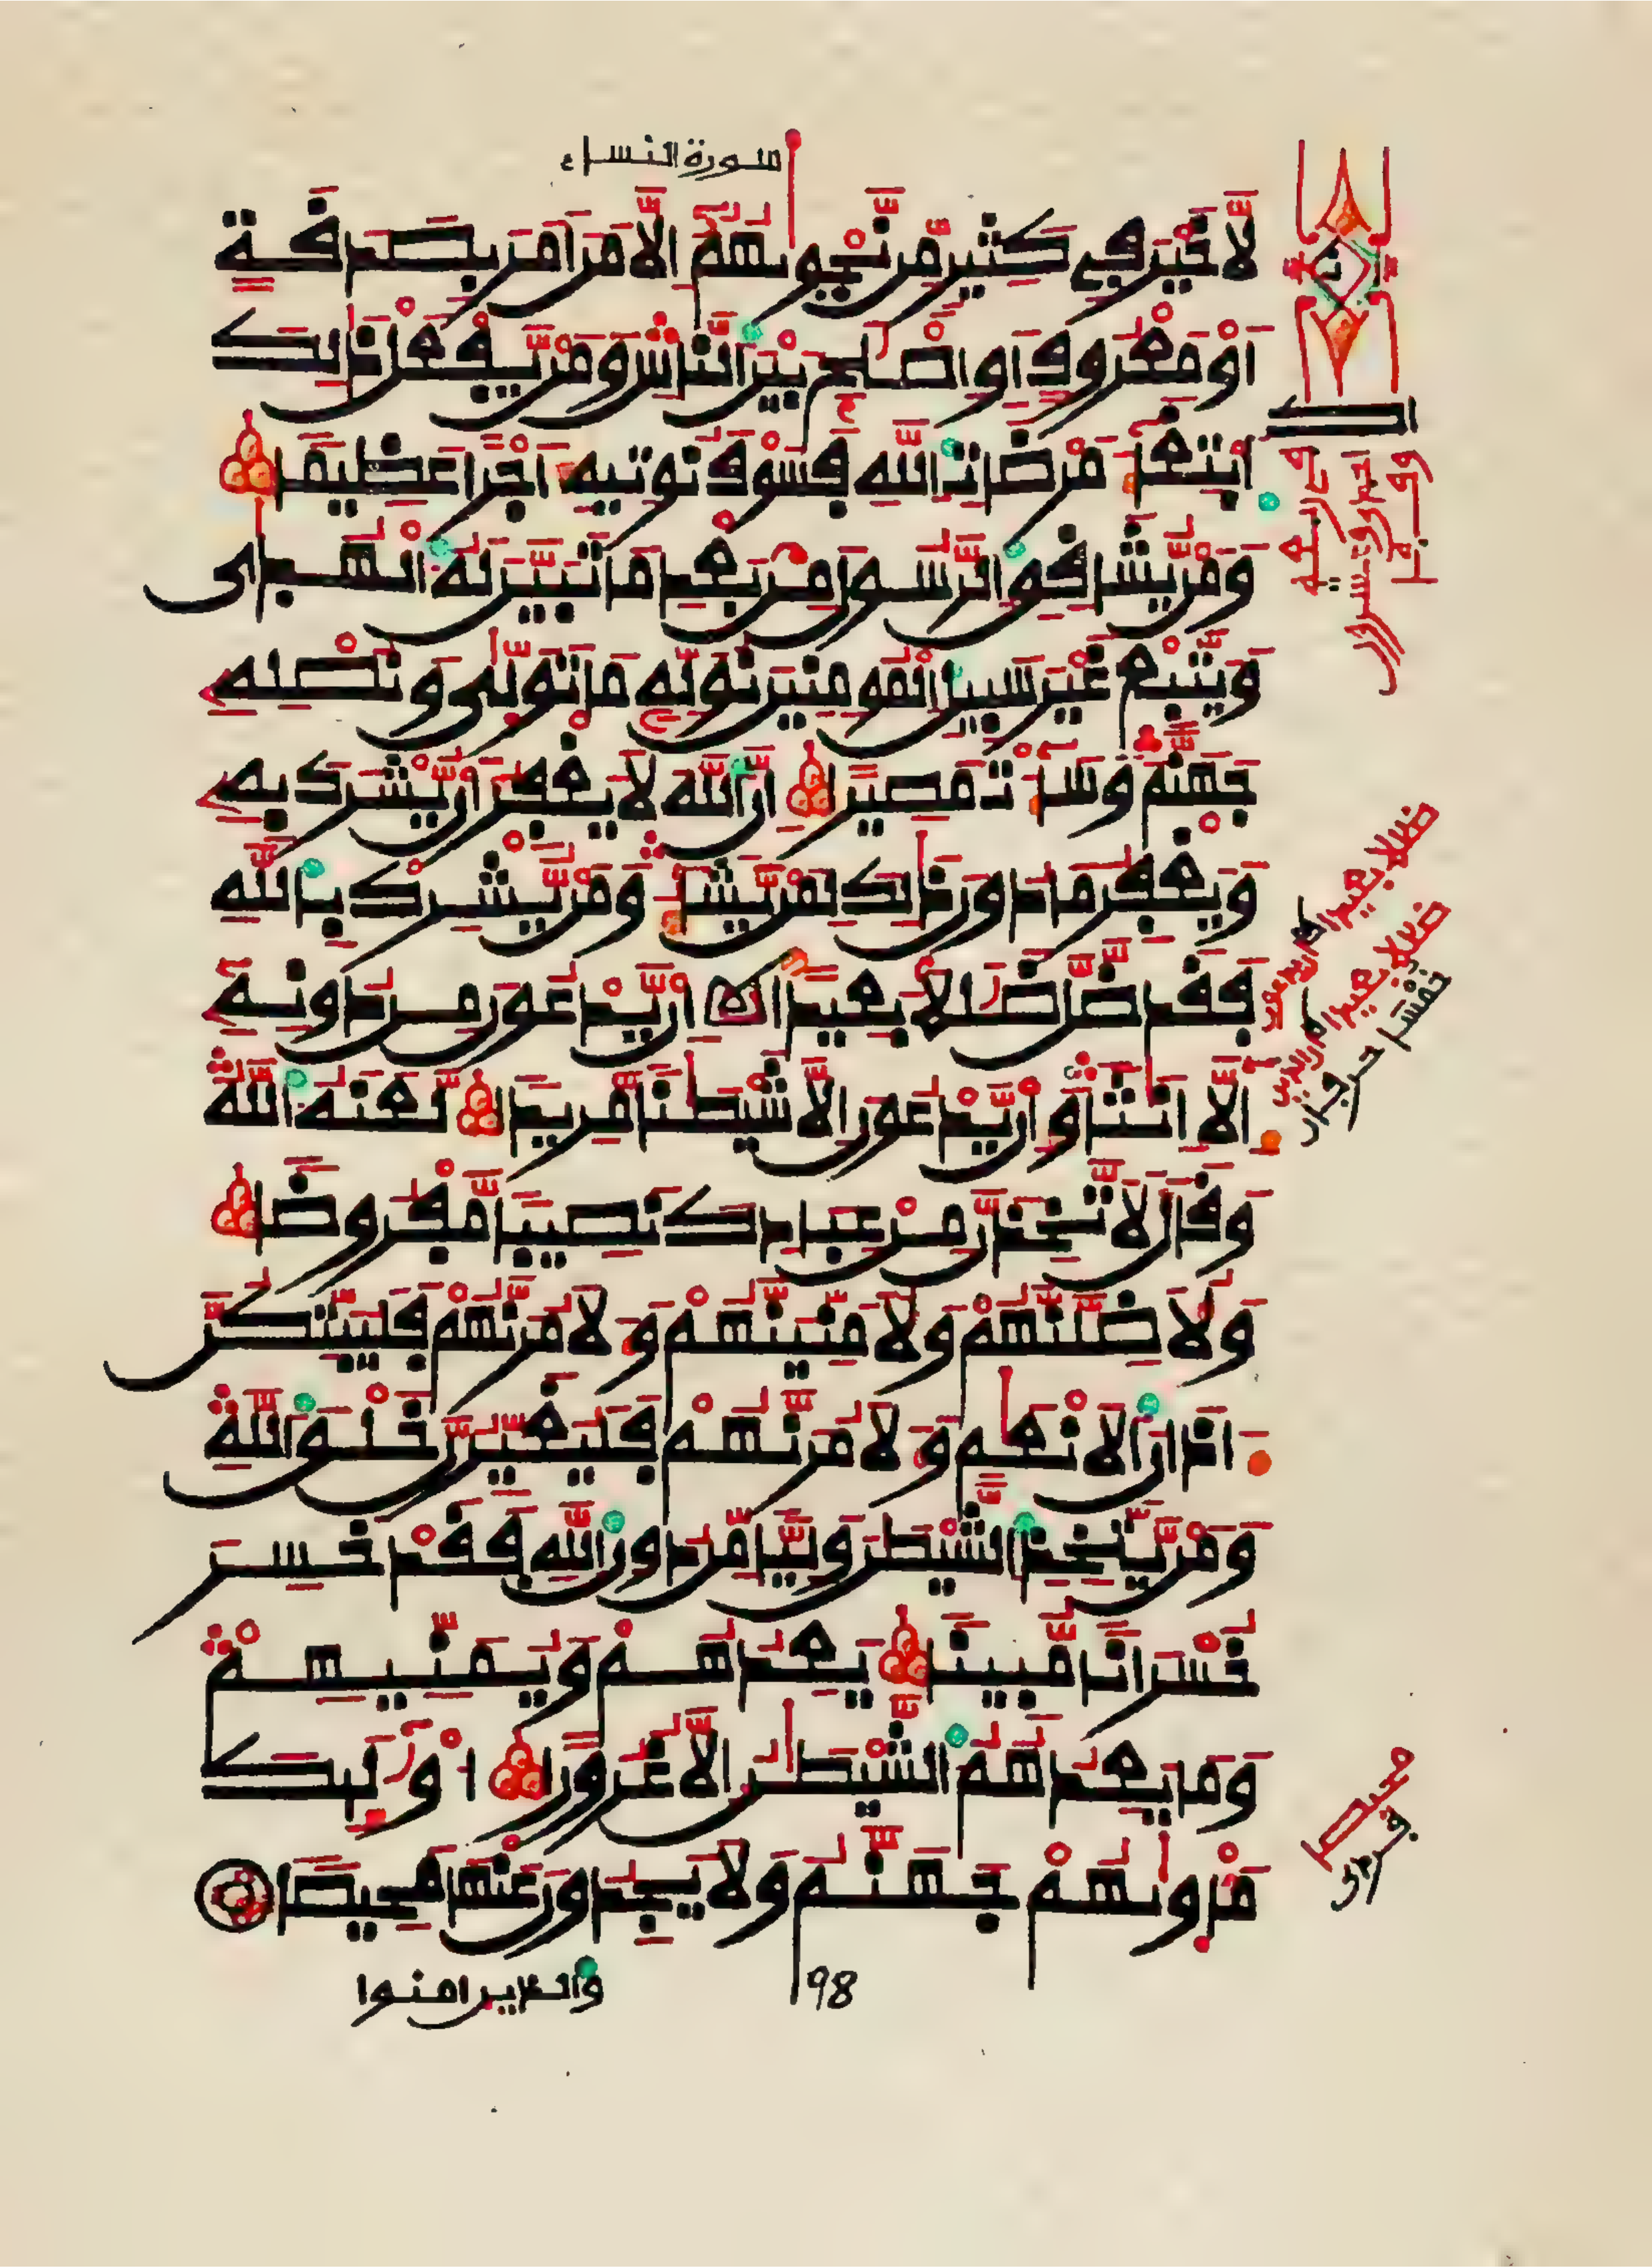 سورة النساء
لَّا خَيْرَ فِي كَثِيرٍ مِّن نَّجْوٜىٰهُمُۥٓ إِلَّا مَنَ اَمَرَ بِصَدَقَةٍ
اَوْ مَعْرُوفٍ اَوِ اِصْلَٰحٍۢ بَيْنَ اَ۬لنَّاسِۖ وَمَنْ يَّفْعَلْ ذَٰلِكَ
اَ۪بْتِغَآءَ مَرْضَاتِ اِ۬للَّهِ فَسَوْفَ نُوتِيهِ أَجْراً عَظِيماً
وَمَنْ يُّشَاقِقِ اِ۬لرَّسُولَ مِنۢ بَعْدِ مَا تَبَيَّنَ لَهُ اُ۬لْهُد۪ىٰ
وَيَتَّبِعْ غَيْرَ سَبِيلِ اِ۬لْمُومِنِينَ نُوَلِّهِۦ مَا تَوَلّ۪ىٰ وَنُصْلِهِۦ
جَهَنَّمَۖ وَسَآءَتْ مَصِيراً إِنَّ اَ۬للَّهَ لَا يَغْفِرُ أَنْ يُّشْرَكَ بِهِۦ
وَيَغْفِرُ مَا دُونَ ذَٰلِكَ لِمَنْ يَّشَآءُۖ وَمَنْ يُّشْرِكْ بِاللَّهِ
فَقَد ضَّلَّ ضَلَٰلاً بَعِيداً اِنْ يَّدْعُونَ مِن دُونِهِۦٓ
إِلَّآ إِنَٰثاً وَإِنْ يَّدْعُونَ إِلَّا شَيْطَٰناً مَّرِيداً لَّعَنَهُ اُ۬للَّهُۖ
وَقَالَ لَأَتَّخِذَنَّ مِنْ عِبَادِكَ نَصِيباً مَّفْرُوضاً
وَلَأُضِلَّنَّهُمْ وَلَأُمَنِّيَنَّهُمْ وَءَلَامُرَنَّهُمْ فَلَيُبَتِّكُنَّ
ءَاذَانَ اَ۬لَانْعَٰمِ وَءَلَامُرَنَّهُمْ فَلَيُغَيِّرُنَّ خَلْقَ اَ۬للَّهِۖ
وَمَنْ يَّتَّخِذِ اِ۬لشَّيْطَٰنَ وَلِيّاً مِّن دُونِ اِ۬للَّهِ فَقَدْ خَسِرَ
خُسْرَاناً مُّبِيناً يَعِدُهُمْ وَيُمَنِّيهِمْۖ
وَمَا يَعِدُهُمُ اُ۬لشَّيْطَٰنُ إِلَّا غُرُوراً ا۟وْلَٰٓئِكَ
مَأْو۪ىٰهُمْ جَهَنَّمُ وَلَا يَجِدُونَ عَنْهَا مَحِيصاً
والذين امنوا
198